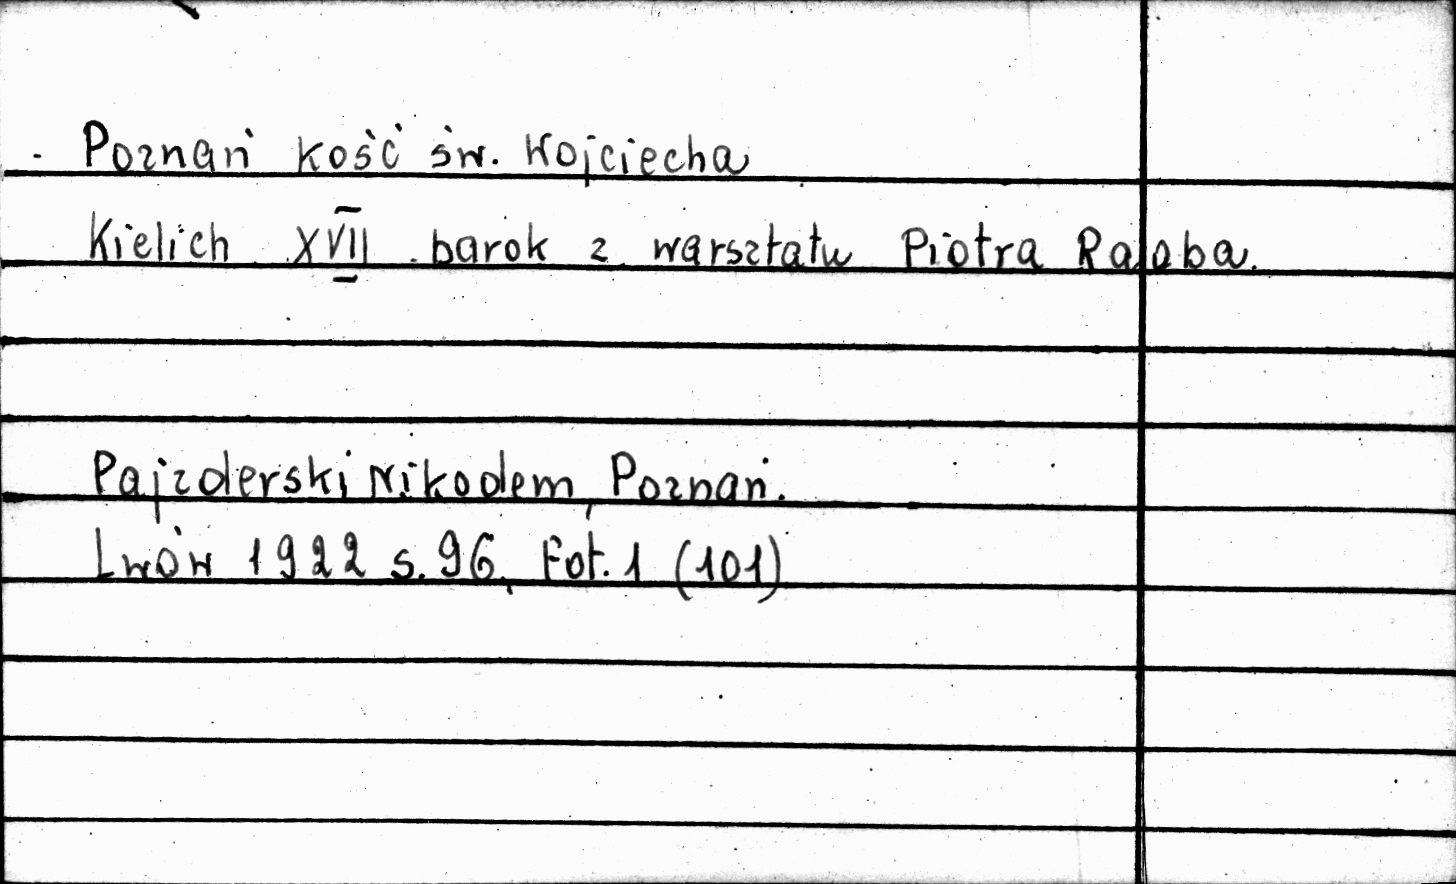 Poznań kość św. Wojciecha
Kielich XVII barok z warsztatu Piotra
Pajzderski Nikodem, Poznań.
Lwów 1922 s. 96, Fot. 1 (101)